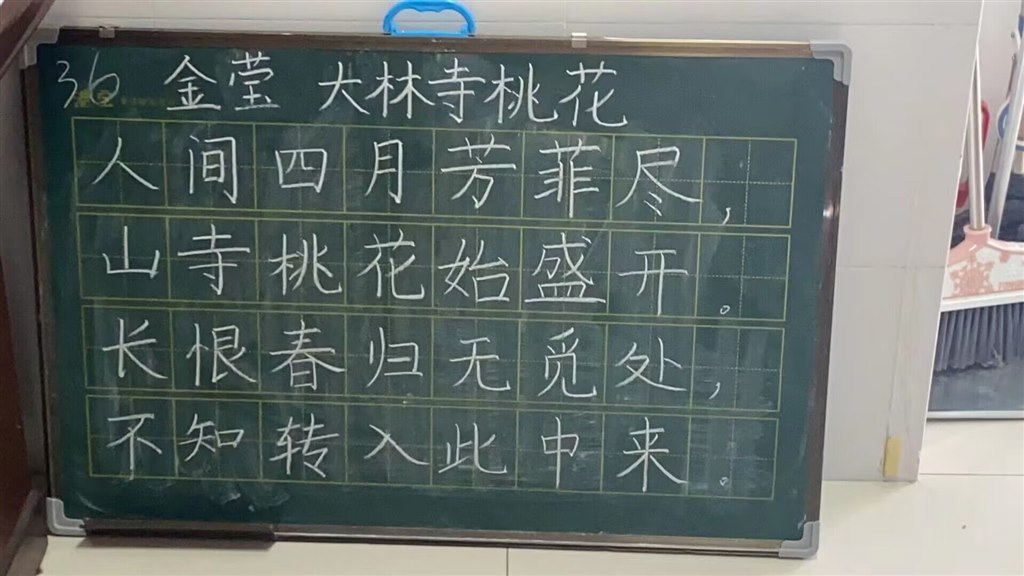 36 金莹 大林寺桃花
人间四月芳菲尽,
山寺桃花始盛开。
长恨春归无觅处,
不知转入此中来。